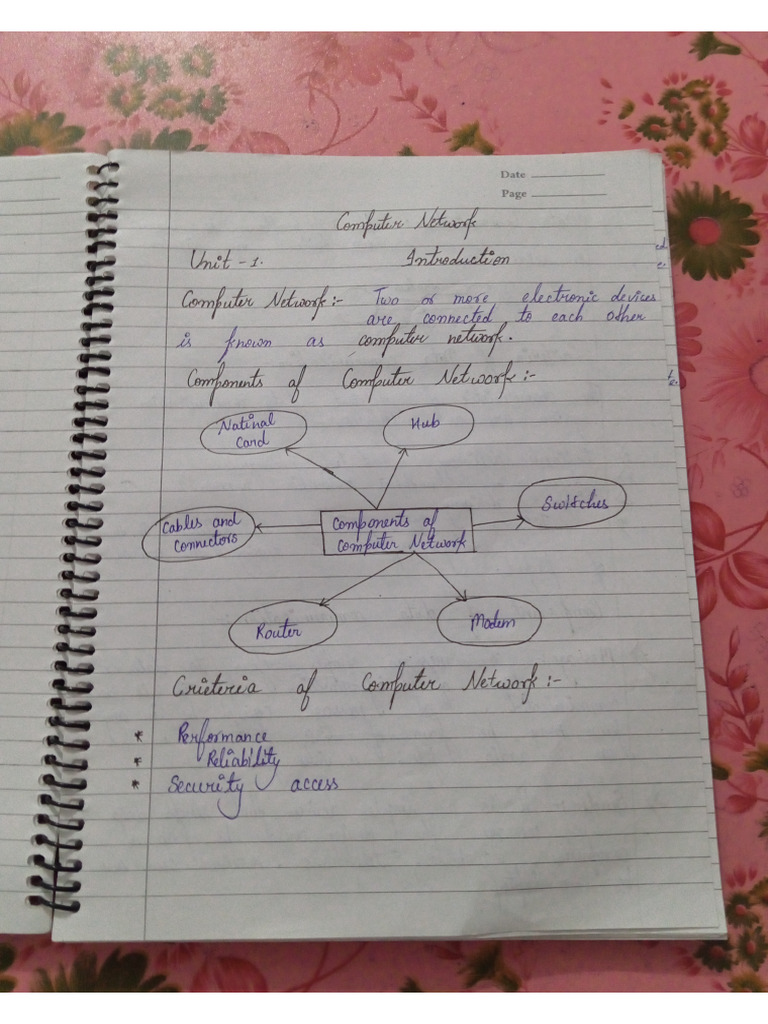 Date
Page
Computer Network
Unit - 1. Introduction
Computer Network:- Two or more electronic devices
are connected to each other
is known as computer network.
Components of Computer Network:-
Natinal
Card
Hub
Switches
Cables and
Connectors
Components of
Computer Network
Router
Modem
Crieteria of Computer Network:-
* Performance
* Reliability
* Security access